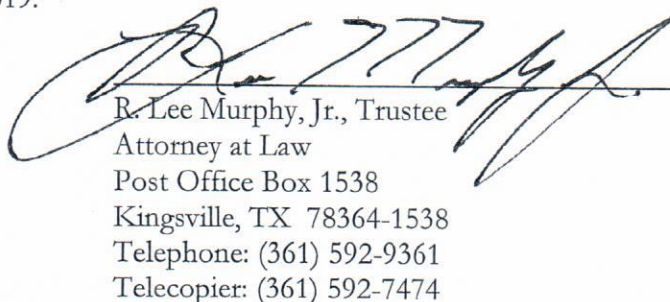 R. Lee Murphy, Jr., Trustee
Attorney at Law
Post Office Box 1538
Kingsville, TX 78364-1538
Telephone: (361) 592-9361
Telecopier: (361) 592-7474